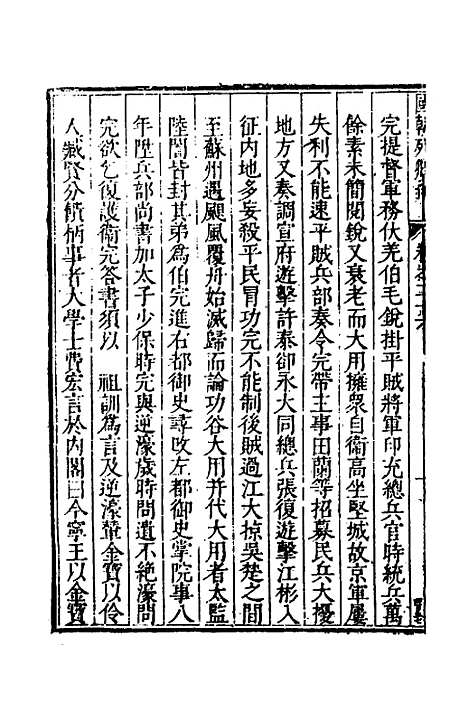 完提督軍務伏羌伯毛銳掛平賊將軍印充總兵官時統兵萬
餘素未簡閱銳又衰老而大用擁衆自衛高坐堅城故京軍屢
失利不能速平賊兵部奏令完帶主事田蘭等招募民兵大擾
地方又奏調宣府遊擊許泰卻永大同總兵張復遊擊江彬入
征内地多妄殺平民冒功完不能制後賊過江大掠吳楚之間
至蘇州遇颶風覆舟始滅歸而論功谷大用并代大用者太監
陸誾皆封其弟為伯完進右都御史尋改左都御史掌院事八
年陞兵部尚書加太子少保時完與逆濠歲時問遺不絶濠問
完欲乞復護衛完答書須以 祖訓為言及逆濠輦金寶以伶
人臧賢分饋柄事者大學士費宏言於内閣曰今寧王以金寶